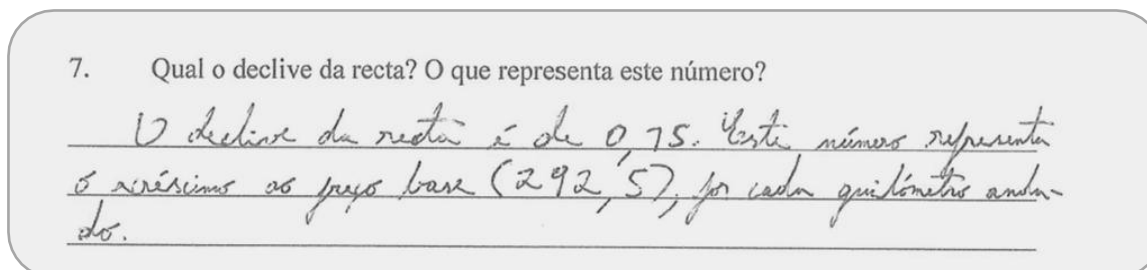 7. Qual o declive da recta? O que representa este número?
O declive da recta é de 0,75. Este número representa
o acréscimo ao preço base (292,5), por cada quilómetro anda-
do.